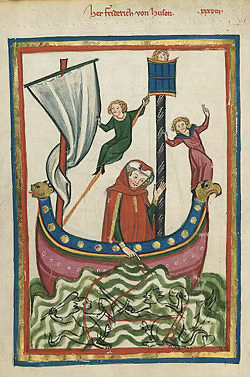 her friderich von husen. xxxviii.